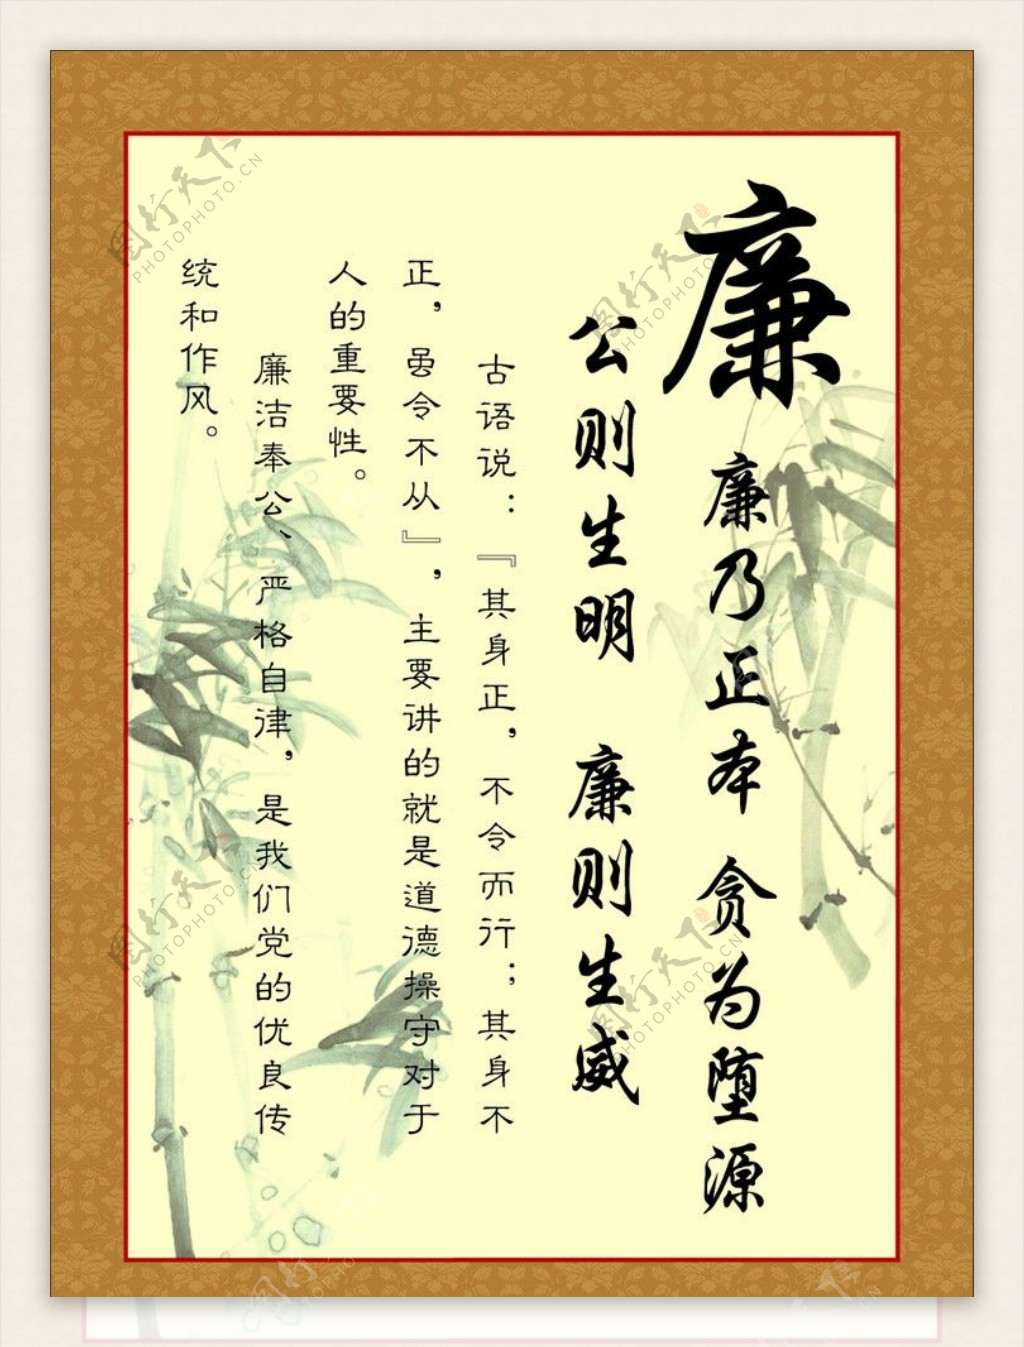 廉
廉乃正本 贪为堕源
公则生明 廉则生威
古语说：『其身正，不令而行；其身不
正，虽令不从』，主要讲的就是道德操守对于
人的重要性。
廉洁奉公、严格自律，是我们党的优良传
统和作风。
图行天下
PHOTOPHOTO.CN